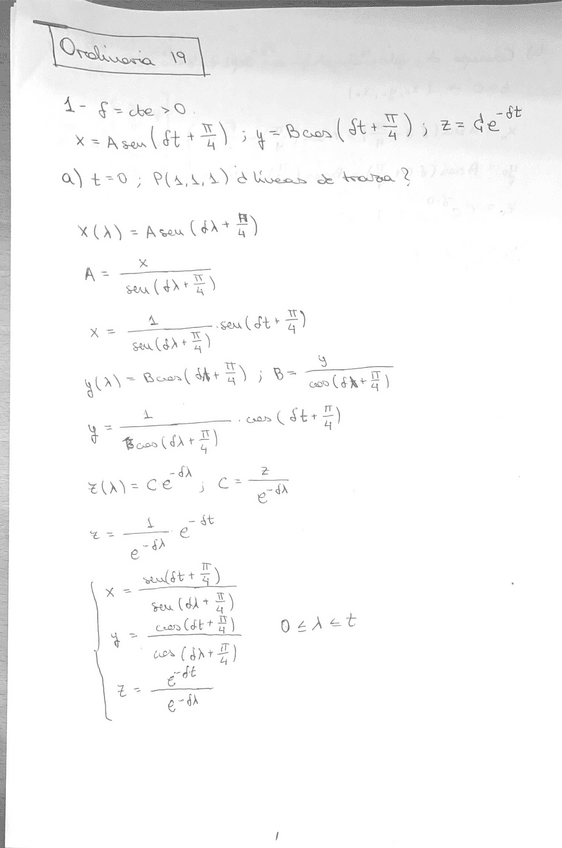 Ordinaria 19
1- δ = cte > 0.
x = A sen(δt + π/4) ; y = B cos(δt + π/4) ; z = C e^-δt
a) t = 0 ; P(1,1,1) ¿ líneas de traza?
x(λ) = A sen(δλ + π/4)
A = x / sen(δλ + π/4)
x = 1 / sen(δλ + π/4) · sen(δt + π/4)
y(λ) = B cos(δλ + π/4) ; B = y / cos(δλ + π/4)
y = 1 / cos(δλ + π/4) · cos(δt + π/4)
z(λ) = C e^-δλ ; C = z / e^-δλ
z = 1 / e^-δλ · e^-δt
x = sen(δt + π/4) / sen(δλ + π/4)
y = cos(δt + π/4) / cos(δλ + π/4) 0 ≤ λ ≤ t
z = e^-δt / e^-δλ
1